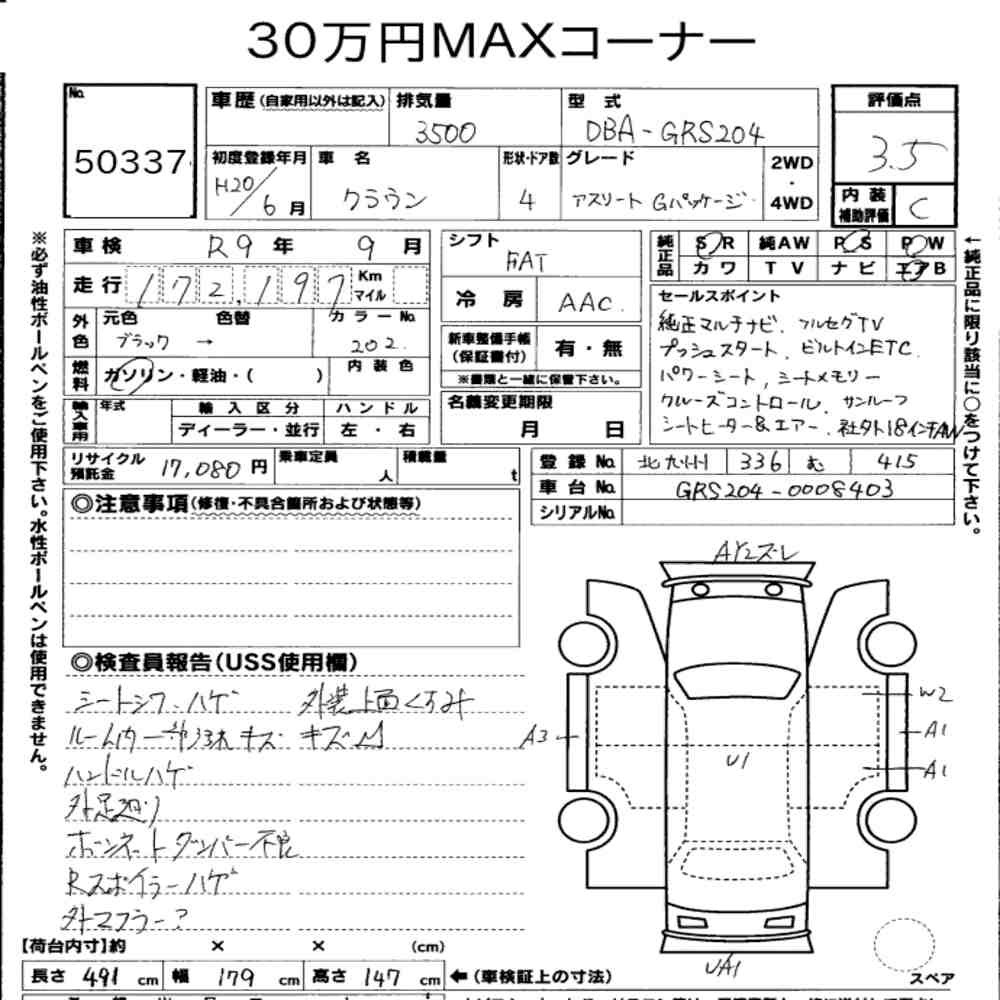 30万円MAXコーナー
No.
50337
車歴(自家用以外は記入) 排気量 型式 評価点
3500 DBA-GRS204 3.5
初度登録年月 車名 形状・ドア数 グレード 2WD・4WD 内装補助評価
H20/6月 クラウン 4 アスリート Gパッケージ C
車検 R9年 9月
走行 172,197 Km マイル
シフト FAT
冷房 AAC
純正品 SR 純AW PS PW
カワ TV ナビ エアB
外色 元色 色替 カラーNo.
ブラック → 202
燃料 ガソリン・軽油・( ) 内装色
新車整備手帳(保証書付) 有・無
※書類と一緒に保管下さい。
セールスポイント
純正マルチナビ、フルセグTV
プッシュスタート、ビルトインETC
パワーシート、シートメモリー
クルーズコントロール、サンルーフ
シートヒーター&エアー、社外18インチAW
輸入車用 年式 輸入区分 ハンドル
ディーラー・並行 左・右
名義変更期限
月 日
リサイクル預託金 17,080円 乗車定員 人 積載量 t
登録No. 北九州 336 む 415
車台No. GRS204-0008403
シリアルNo.
◎注意事項(修復・不具合箇所および状態等)
◎検査員報告(USS使用欄)
シートシワ、ハゲ 外装上面くすみ
ルーム内一部汚れキズ キズ
ハンドルハゲ
外足廻り
ボンネットダンパー不良
Rスポイラーハゲ
外マフラー?
W2
A3
A1
U1
A1
UA1
スペア
【荷台内寸】約 × × (cm)
長さ 491cm 幅 179cm 高さ 147cm ←(車検証上の寸法)
※必ず油性ボールペンをご使用下さい。水性ボールペンは使用できません。
←純正品に限り該当に○をつけて下さい。